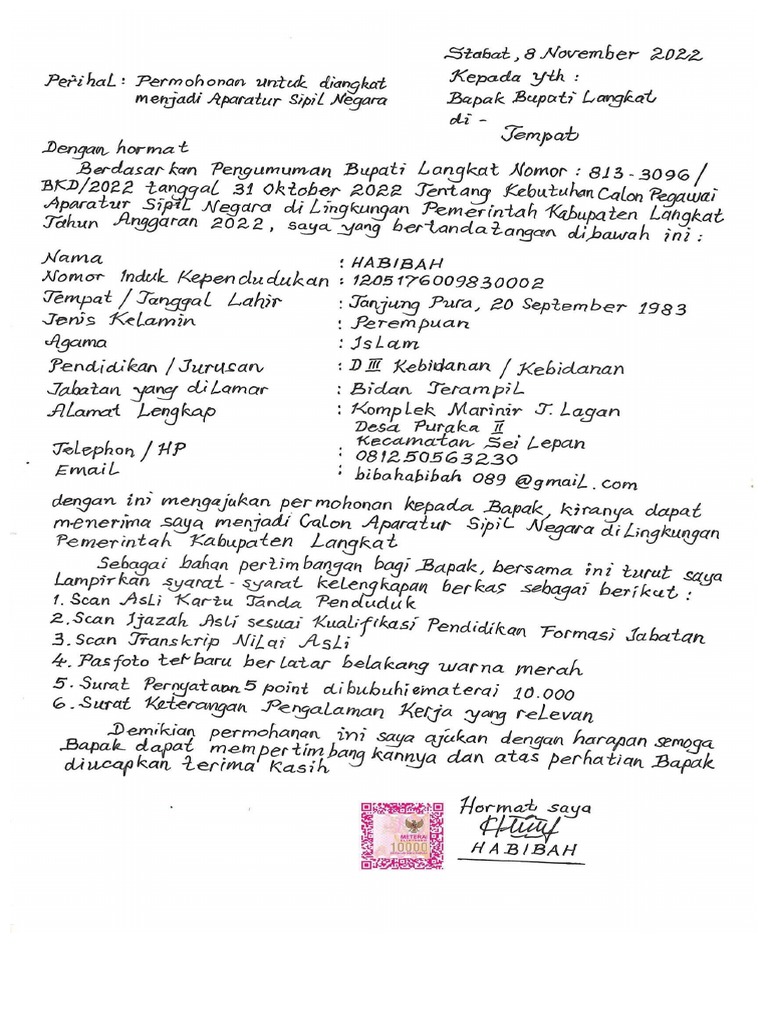 Stabat, 8 November 2022
Perihal : Permohonan untuk diangkat
menjadi Aparatur Sipil Negara
Kepada Yth :
Bapak Bupati Langkat
di -
Tempat
Dengan hormat
Berdasarkan Pengumuman Bupati Langkat Nomor : 813-3096/
BKD/2022 tanggal 31 Oktober 2022 Tentang Kebutuhan Calon Pegawai
Aparatur Sipil Negara di Lingkungan Pemerintah Kabupaten Langkat
Tahun Anggaran 2022, saya yang bertandatangan dibawah ini :
Nama : HABIBAH
Nomor Induk Kependudukan : 1205176009830002
Tempat / Tanggal Lahir : Tanjung Pura, 20 September 1983
Jenis Kelamin : Perempuan
Agama : Islam
Pendidikan / Jurusan : D III Kebidanan / Kebidanan
Jabatan yang diLamar : Bidan Terampil
Alamat Lengkap : Komplek Marinir T. Lagan
Desa Puraka II
Kecamatan Sei Lepan
Telephon / HP : 081250563230
Email : bibahabibah 089 @gmail.com
dengan ini mengajukan permohonan kepada Bapak, kiranya dapat
menerima saya menjadi Calon Aparatur Sipil Negara di Lingkungan
Pemerintah Kabupaten Langkat
Sebagai bahan pertimbangan bagi Bapak, bersama ini turut saya
Lampirkan syarat-syarat kelengkapan berkas sebagai berikut :
1. Scan Asli Kartu Tanda Penduduk
2. Scan Ijazah Asli sesuai Kualifikasi Pendidikan Formasi Jabatan
3. Scan Transkrip Nilai Asli
4. Pasfoto terbaru berlatar belakang warna merah
5. Surat Pernyataan 5 point dibubuhiematerai 10.000
6. Surat Keterangan Pengalaman Kerja yang relevan
Demikian permohanan ini saya ajukan dengan harapan semoga
Bapak dapat mempertimbangkannya dan atas perhatian Bapak
diucapkan terima kasih
Hormat saya
METERAI
10000
HABIBAH